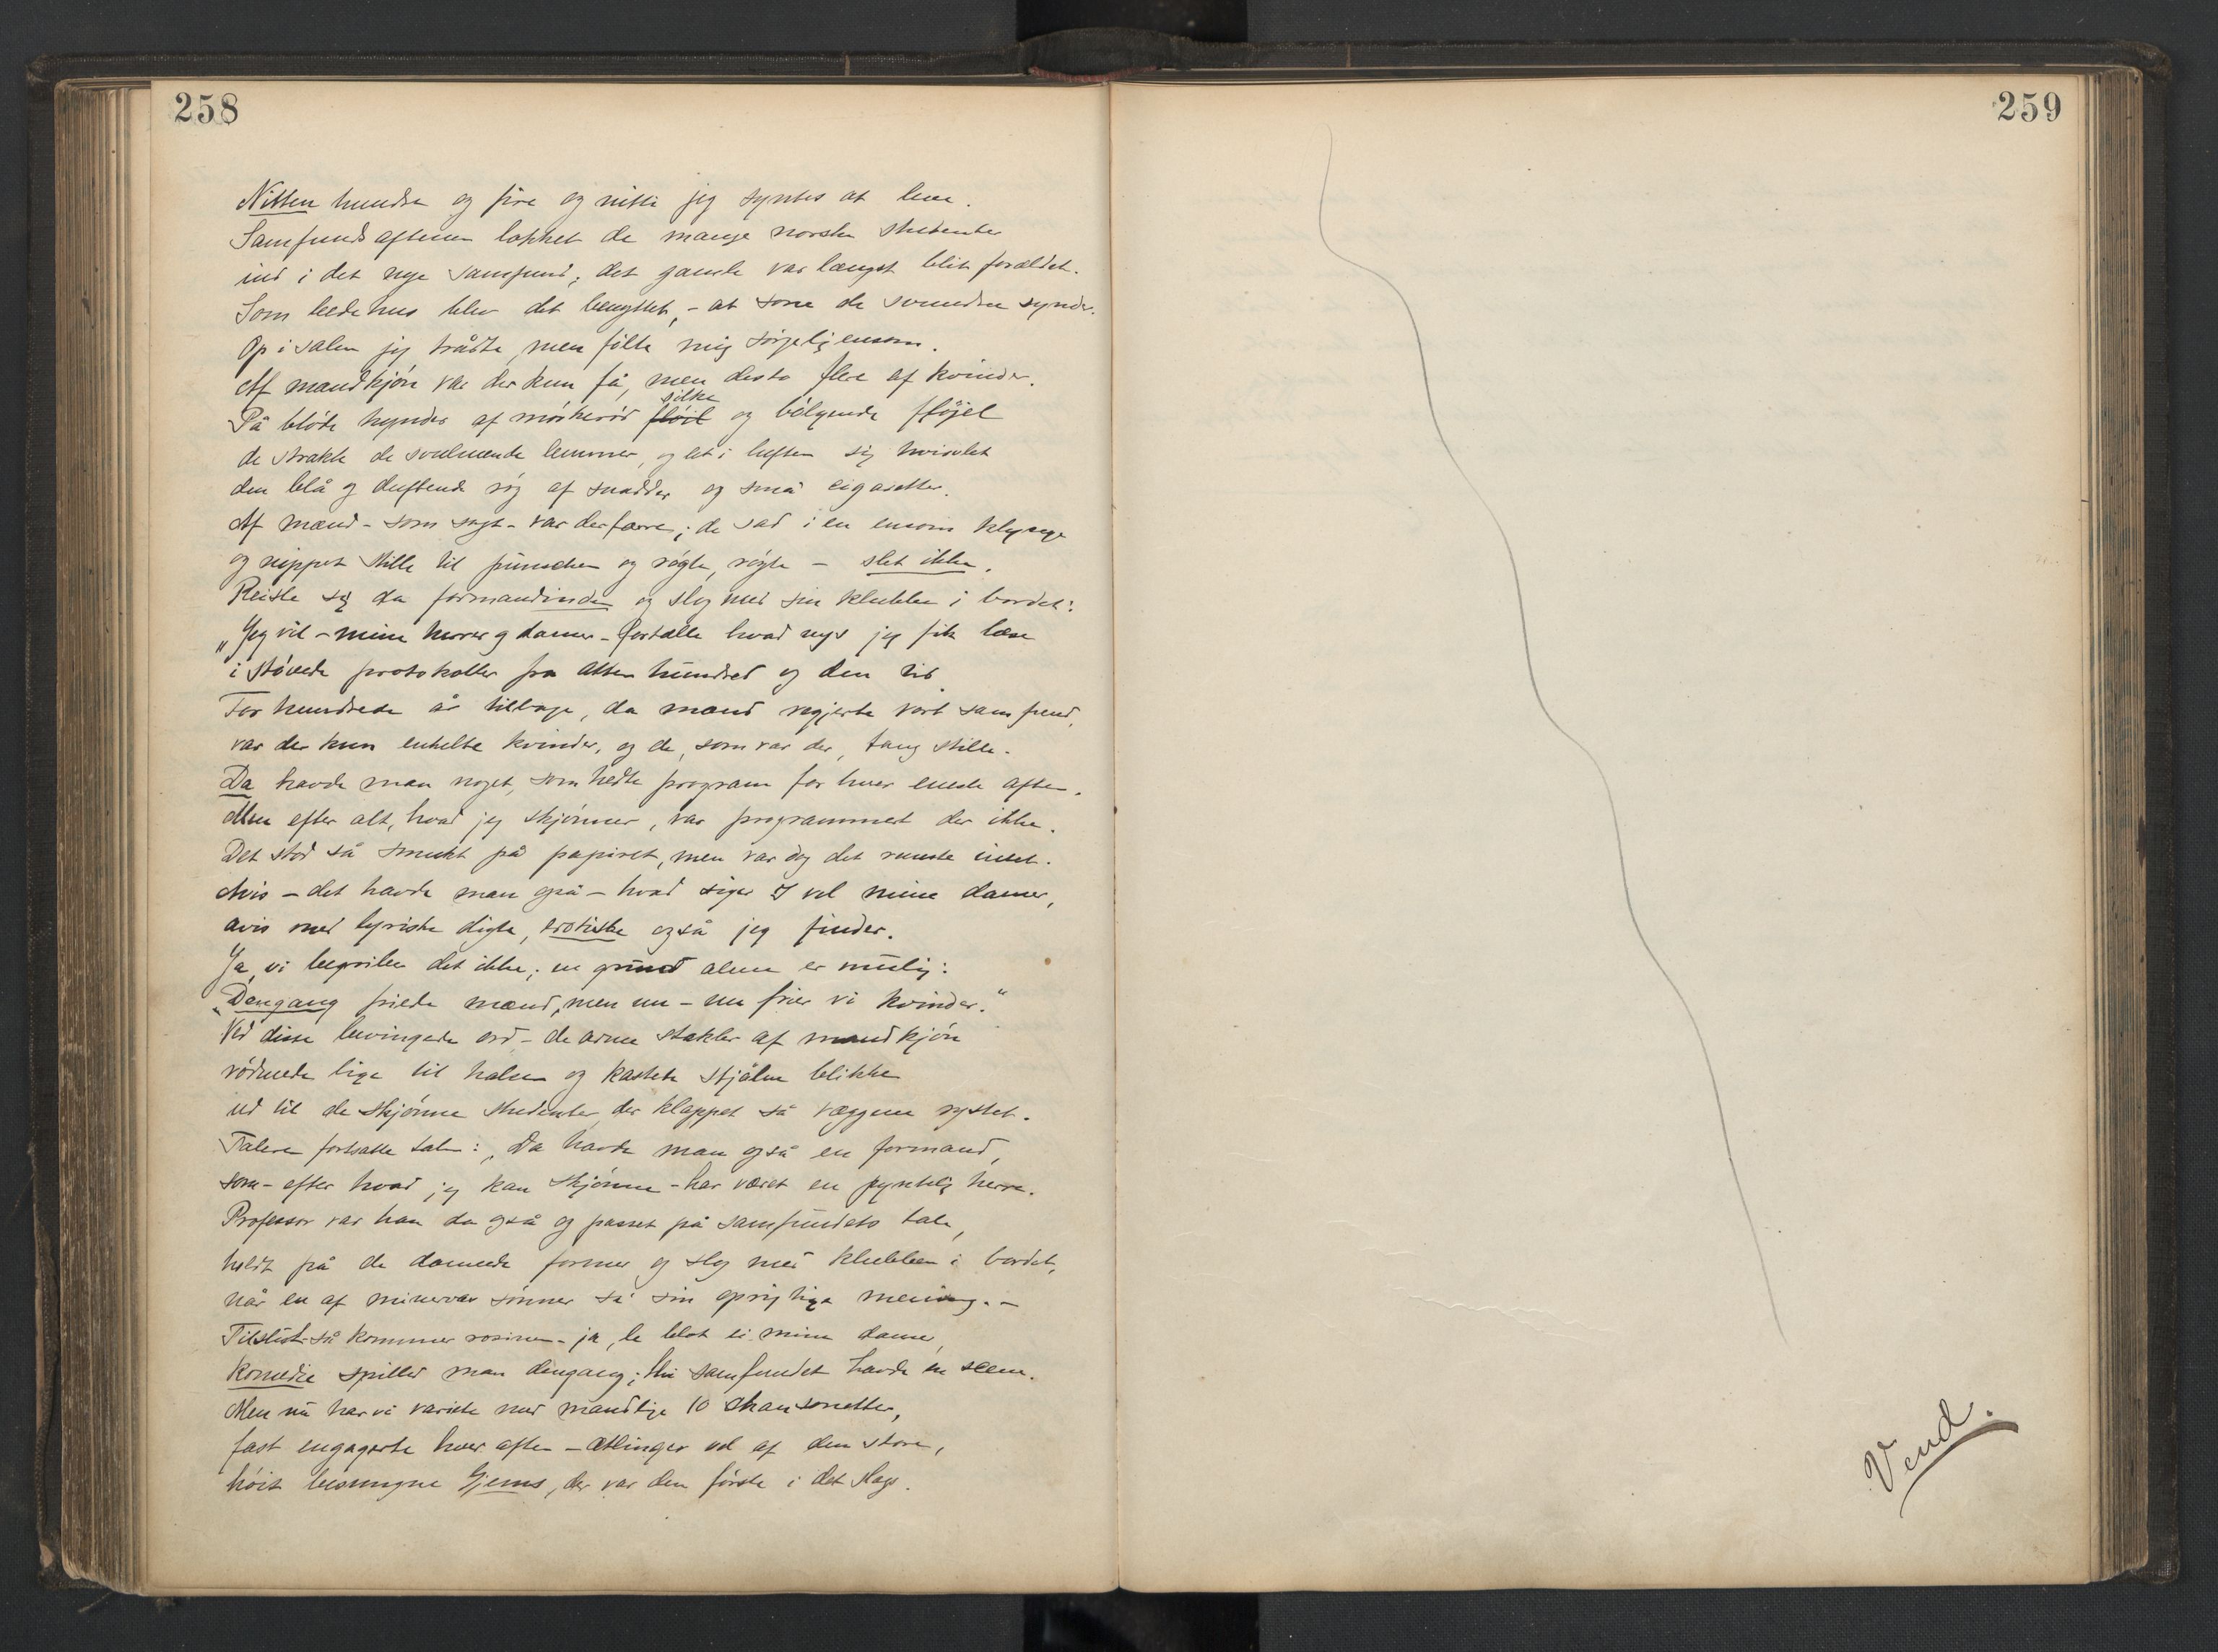 258
Nitten hundre og fire og nitti jeg syntes at leve.
Samfundsaftenen lokket de mange norske studenter
ind i det nye samfund; det gamle var længst blit forældet.
Som bedehus blev det benyttet, - at sone de svundne synder.
Op i salen jeg trådte, men følte mig sørgelig ensom.
Af mandkjøn var der kun få, men desto flere af kvinder.
På bløde hynder af mørkerød silke og bølgende fløjel
de strakte de svulmende lemmer, og let i luften sig hvirvlet
den blå og duftende røg af snadder og små cigaretter.
Af mænd - som sagt - var der færre; de sad i en ensom klynge
og nippet stille til punschen og røgte, røgte - slet ikke.
Reiste sig da formandinden og slog med sin klubbe i bordet:
"Jeg vil - mine herrer og damer - fortælle hvad nys jeg fik læse
i støvede protokoller fra atten hundred og den tid.
For hundrede år tilbage, da mænd regjerte vort samfund,
var der kun enkelte kvinder, og de, som var der, taug stille.
Da havde man noget, som hedte program for hver eneste aften.
Men efter alt, hvad jeg skjønner, var programmet der ikke.
Det stod så smukt på papiret, men var dog det rareste intet.
Avis - det havde man også - hvad siger I vel mine damer,
avis med lyriske digte, erotiske også jeg finder.
Ja, vi begriber det ikke; en grund alene er mulig:
"Dengang friede mænd, men nu - nu frier vi kvinder."
Ved disse bevingede ord - de arme stakler af mandkjøn
rødmede lige til halsen og kastede stjålne blikke
ud til de skjønne studenter, der klappet så væggene rystet.
Taleren fortsatte talen: "Da havde man også en formand,
som - efter hvad jeg kan skjønne - har været en pyntelig herre.
Professor var han da også og passet på samfundets tale,
holdt på de dannede former og slog med klubben i bordet,
når en af minervas sønner sa' sin oprigtige mening. -
Tilslut - så kommer rosinen - ja, le blot ei mine damer,
komedie spilled man dengang; thi samfundet havde en scene.
Men nu har vi varieté med mandlige 10 chansonetter,
fast engagerte hver aften - ætlinger vel af den store,
høit besungne Gjems, der var den første i det slags.
259
Vend.